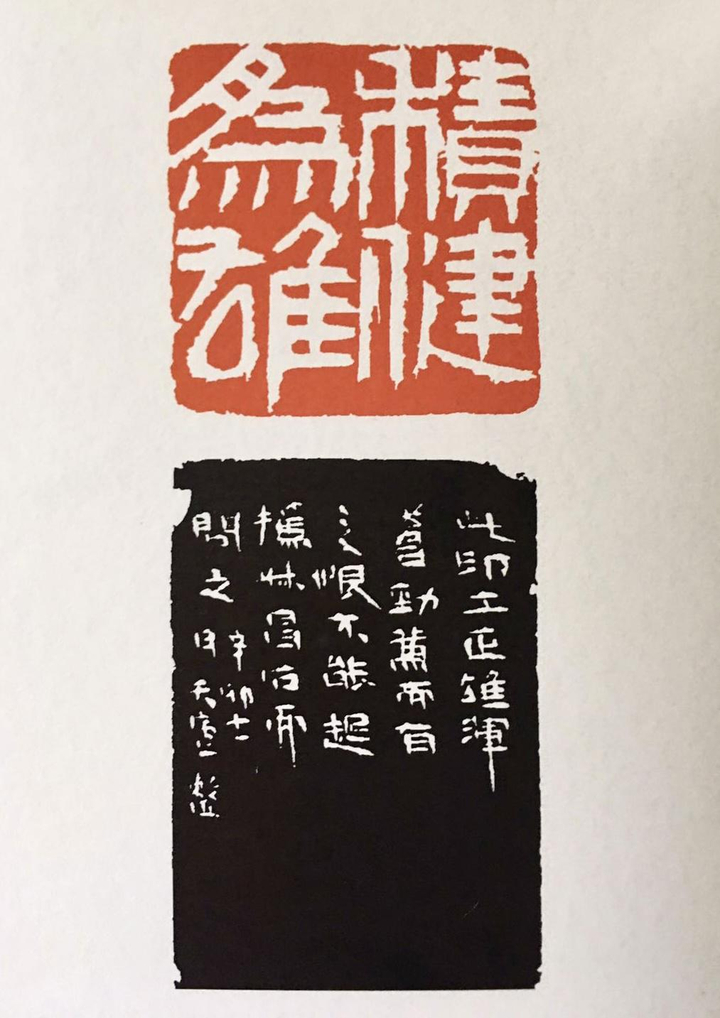 積健
為雄
此印工正雄渾
蒼勁兼而有
之恨不能起
撝叔昌石而
問之
辛卯十一
月天